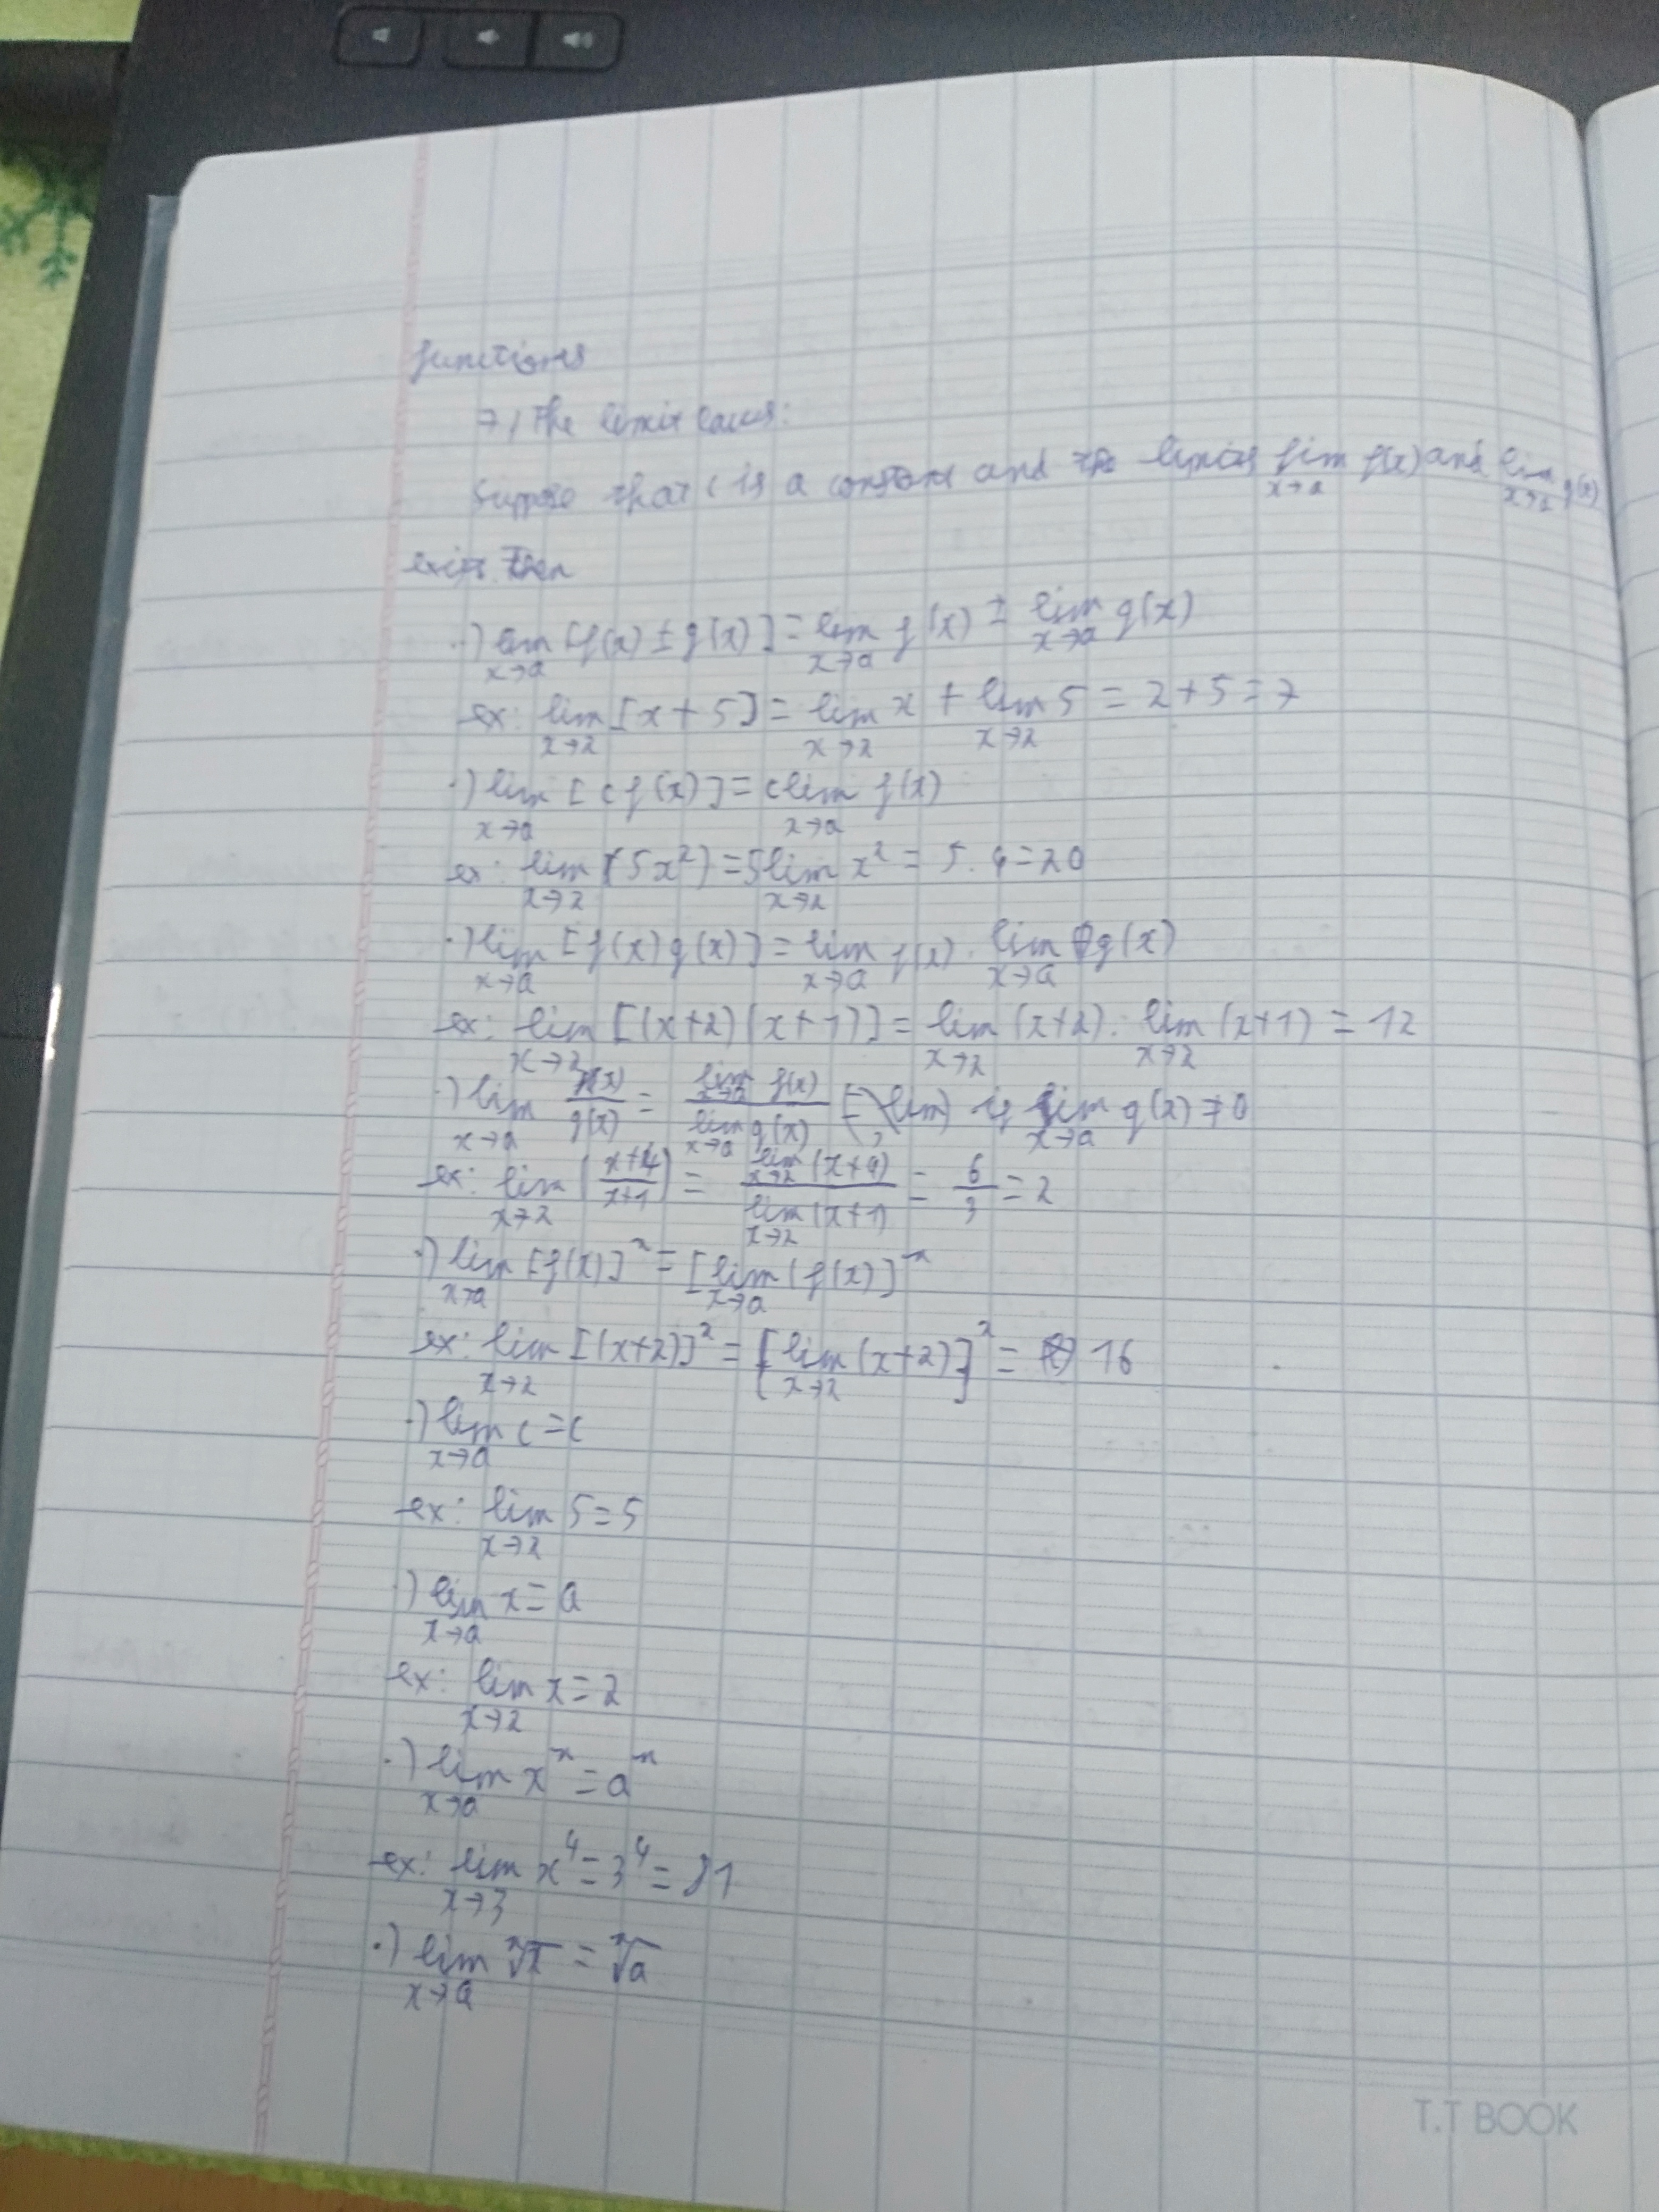 functions
7, The limit laws:
Suppose that c is a constant and the limits lim x→a f(x) and lim x→a g(x)
exist. Then
·) lim x→a [f(x) ± g(x)] = lim x→a f(x) ± lim x→a g(x)
ex: lim x→2 [x + 5] = lim x→2 x + lim x→2 5 = 2 + 5 = 7
·) lim x→a [c f(x)] = c lim x→a f(x)
ex: lim x→2 (5x²) = 5 lim x→2 x² = 5 . 4 = 20
·) lim x→a [f(x) g(x)] = lim x→a f(x) . lim x→a g(x)
ex: lim x→2 [(x+2)(x+1)] = lim x→2 (x+2) . lim x→2 (x+1) = 12
·) lim x→a f(x)/g(x) = lim x→a f(x) / lim x→a g(x) if lim x→a g(x) ≠ 0
ex: lim x→2 (x+4/x+1) = lim x→2 (x+4) / lim x→2 (x+1) = 6/3 = 2
·) lim x→a [f(x)]ⁿ = [lim x→a (f(x)]ⁿ
ex: lim x→2 [(x+2)]² = [lim x→2 (x+2)]² = 16
·) lim x→a c = c
ex: lim x→2 5 = 5
·) lim x→a x = a
ex: lim x→2 x = 2
·) lim x→a xⁿ = aⁿ
ex: lim x→3 x⁴ = 3⁴ = 81
·) lim x→a ⁿ√x = ⁿ√a
T.T BOOK